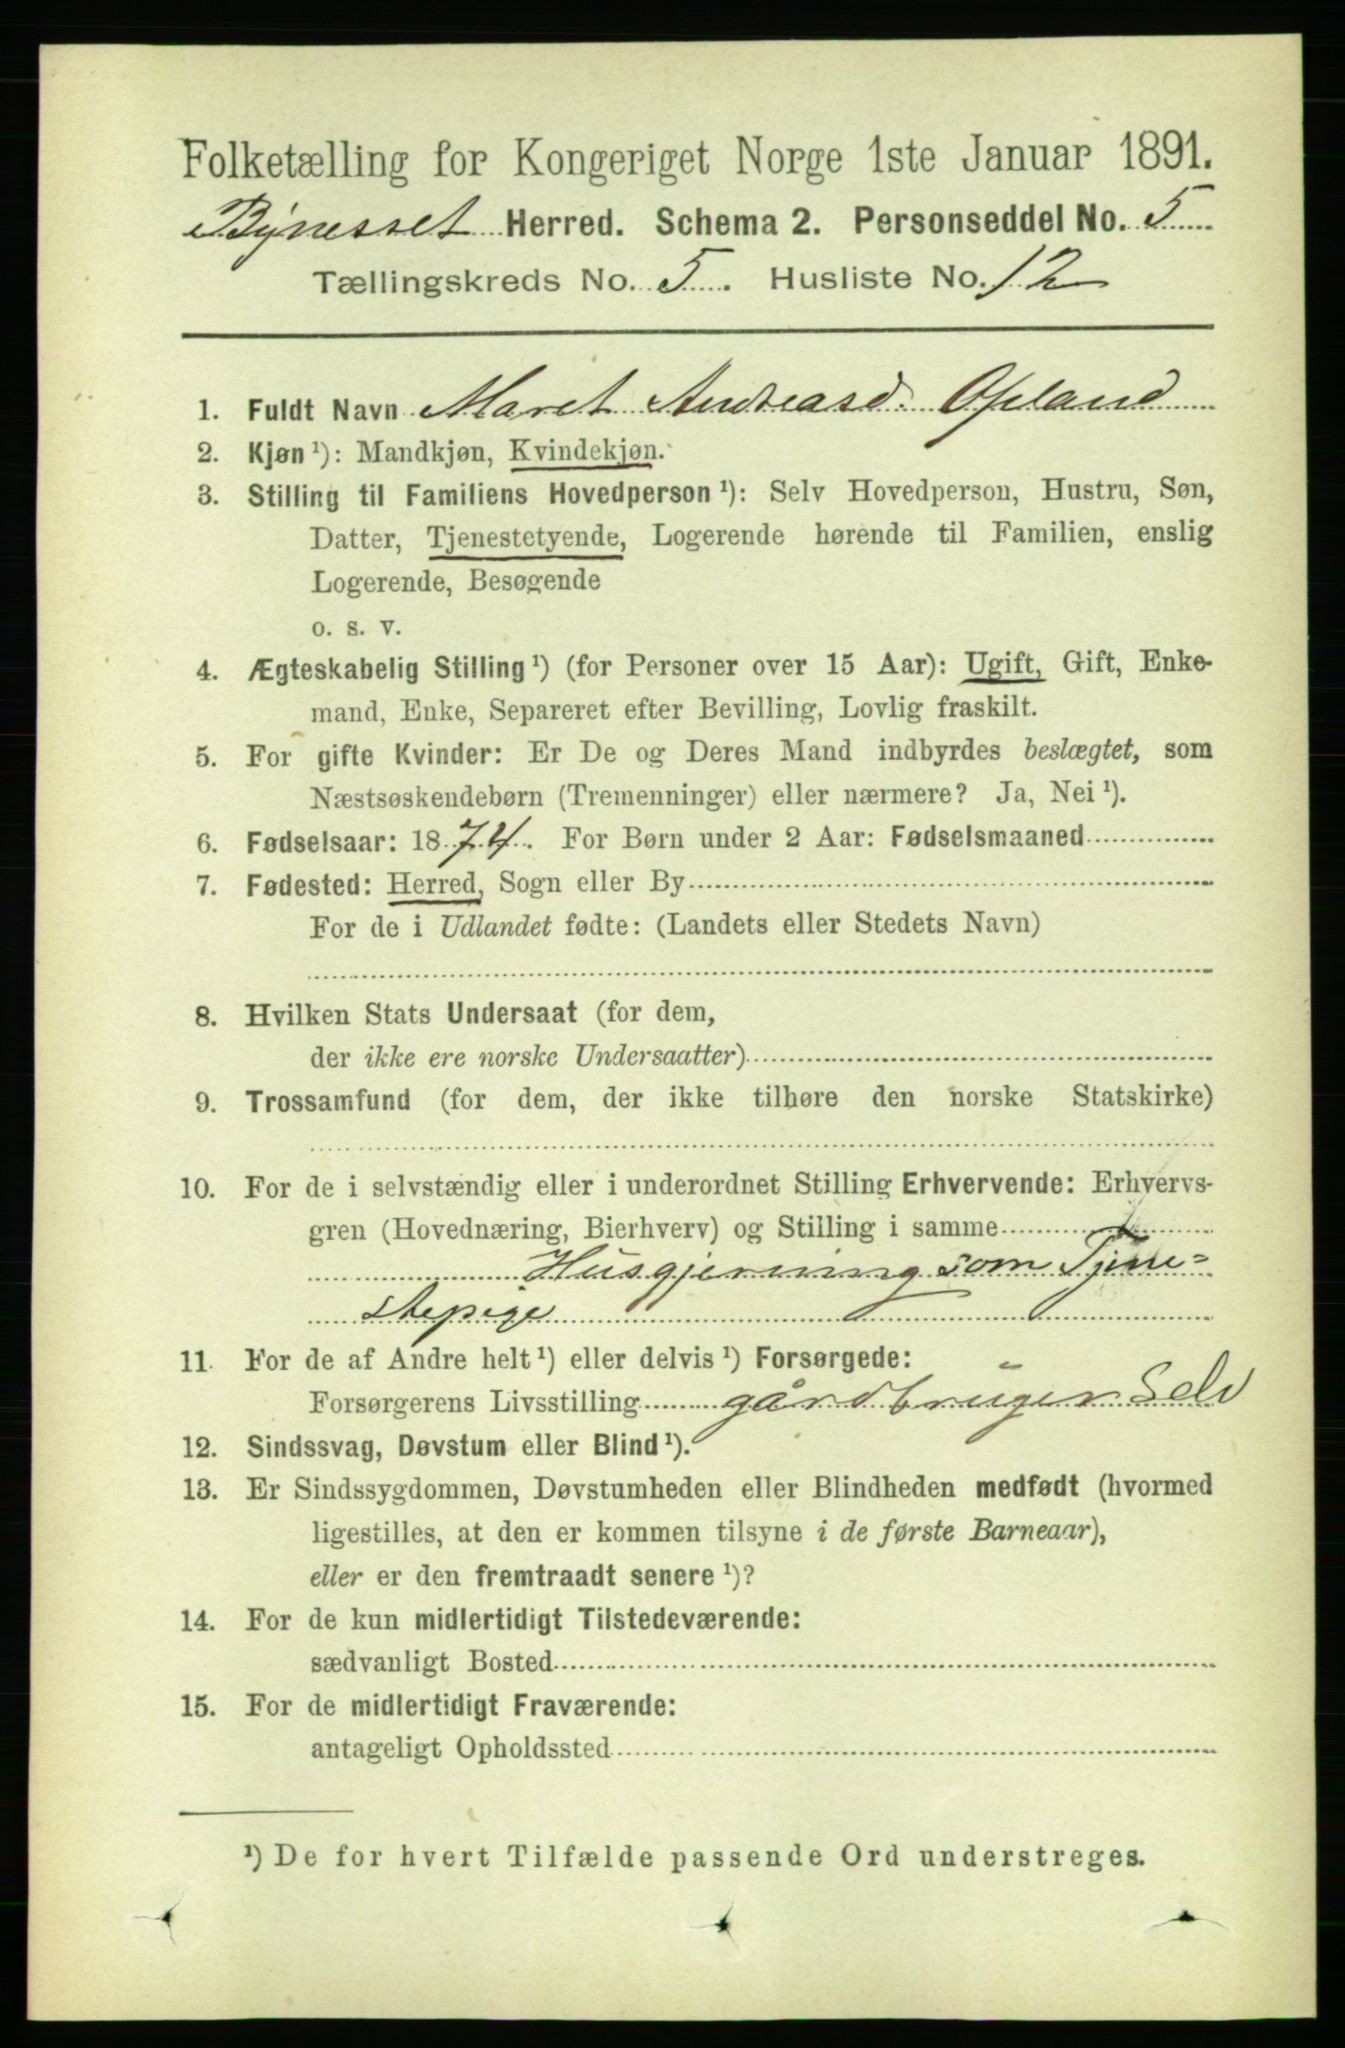 Folketælling for Kongeriget Norge 1ste Januar 1891.
Bynesset Herred. Schema 2. Personseddel No. 5
Tællingskreds No. 5. Husliste No. 12
1. Fuldt Navn Maret Andreasd. Opland
2. Kjøn ¹): Mandkjøn, Kvindekjøn.
3. Stilling til Familiens Hovedperson ¹): Selv Hovedperson, Hustru, Søn,
Datter, Tjenestetyende, Logerende hørende til Familien, enslig
Logerende, Besøgende
o. s. v.
4. Ægteskabelig Stilling ¹) (for Personer over 15 Aar): Ugift, Gift, Enke-
mand, Enke, Separeret efter Bevilling, Lovlig fraskilt.
5. For gifte Kvinder: Er De og Deres Mand indbyrdes beslægtet, som
Næstsøskendebørn (Tremenninger) eller nærmere? Ja, Nei ¹).
6. Fødselsaar: 1874. For Børn under 2 Aar: Fødselsmaaned
7. Fødested: Herred, Sogn eller By
For de i Udlandet fødte: (Landets eller Stedets Navn)
8. Hvilken Stats Undersaat (for dem,
der ikke ere norske Undersaatter)
9. Trossamfund (for dem, der ikke tilhøre den norske Statskirke)
10. For de i selvstændig eller i underordnet Stilling Erhvervende: Erhvervs-
gren (Hovednæring, Bierhverv) og Stilling i samme
Husgjerning som Tjene=
stepige
11. For de af Andre helt ¹) eller delvis ¹) Forsørgede:
Forsørgerens Livsstilling gårdbruger Selv
12. Sindssvag, Døvstum eller Blind ¹).
13. Er Sindssygdommen, Døvstumheden eller Blindheden medfødt (hvormed
ligestilles, at den er kommen tilsyne i de første Barneaar),
eller er den fremtraadt senere ¹)?
14. For de kun midlertidigt Tilstedeværende:
sædvanligt Bosted
15. For de midlertidigt Fraværende:
antageligt Opholdssted
¹) De for hvert Tilfælde passende Ord understreges.